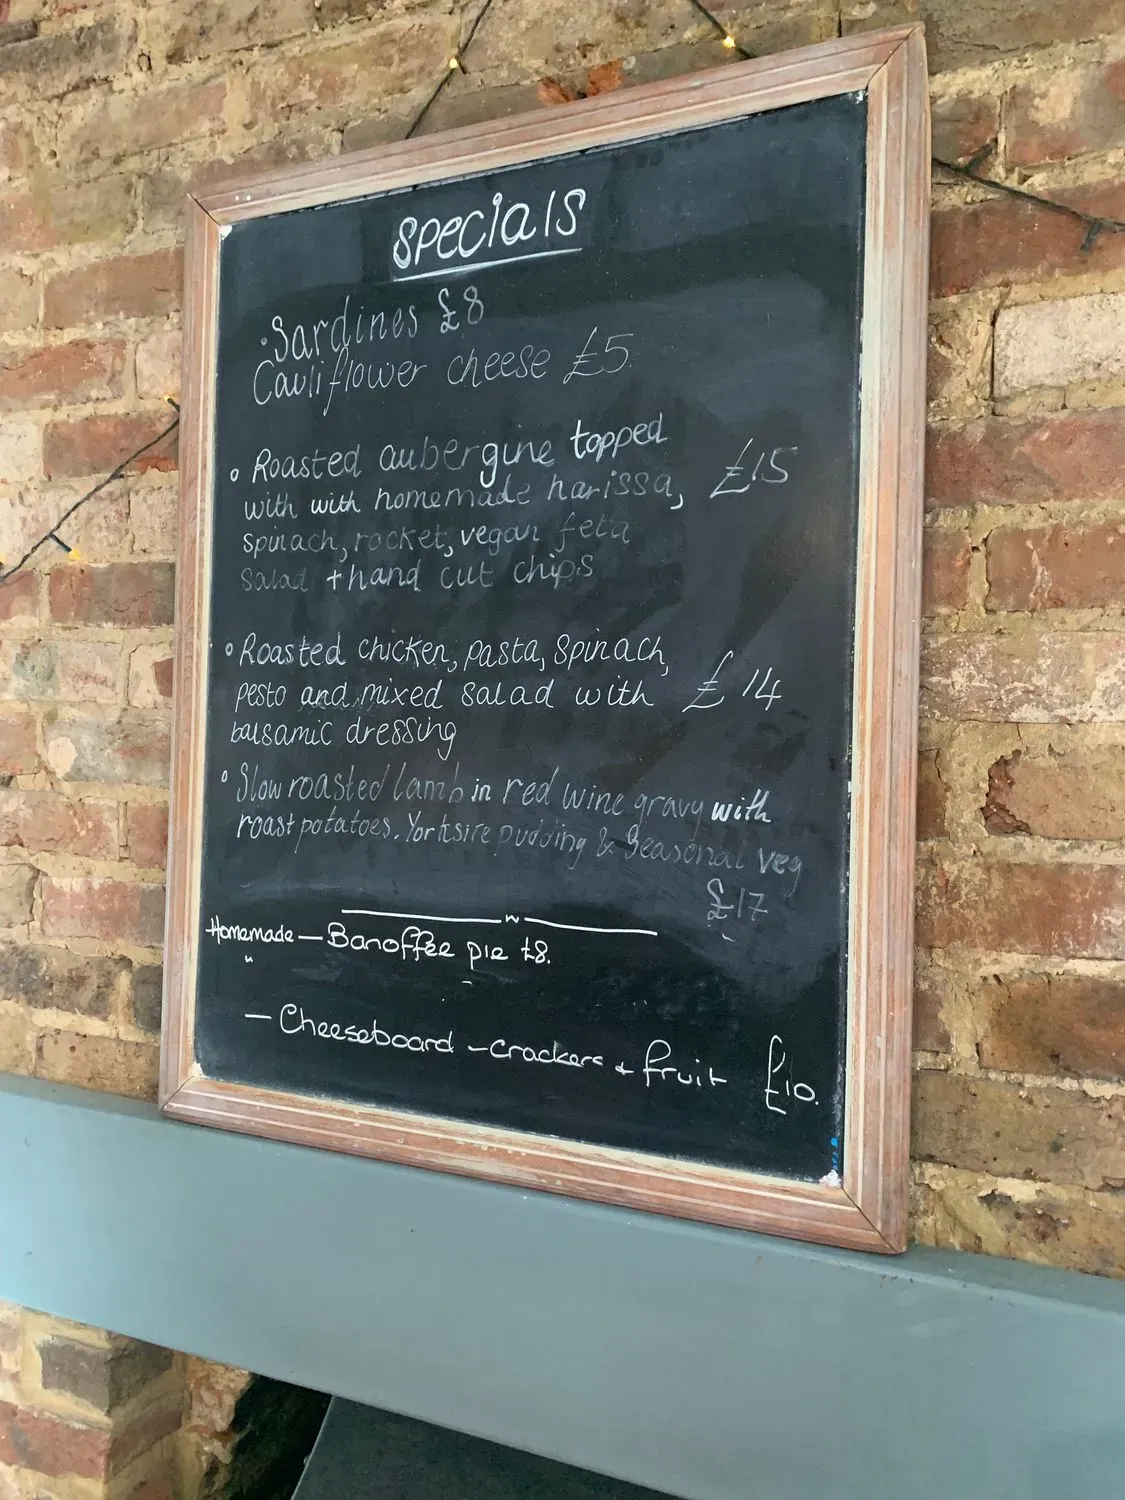 Specials
·Sardines £8
Cauliflower cheese £5
° Roasted aubergine topped
with with homemade harissa, £15
spinach, rocket, vegan feta
salad + hand cut chips
° Roasted chicken, pasta, spinach,
pesto and mixed salad with £14
balsamic dressing
° Slow roasted lamb in red wine gravy with
roast potatoes. Yorksire pudding & Seasonal veg
£17
Homemade — Banoffee pie £8.
"
— Cheeseboard - crackers + fruit £10.